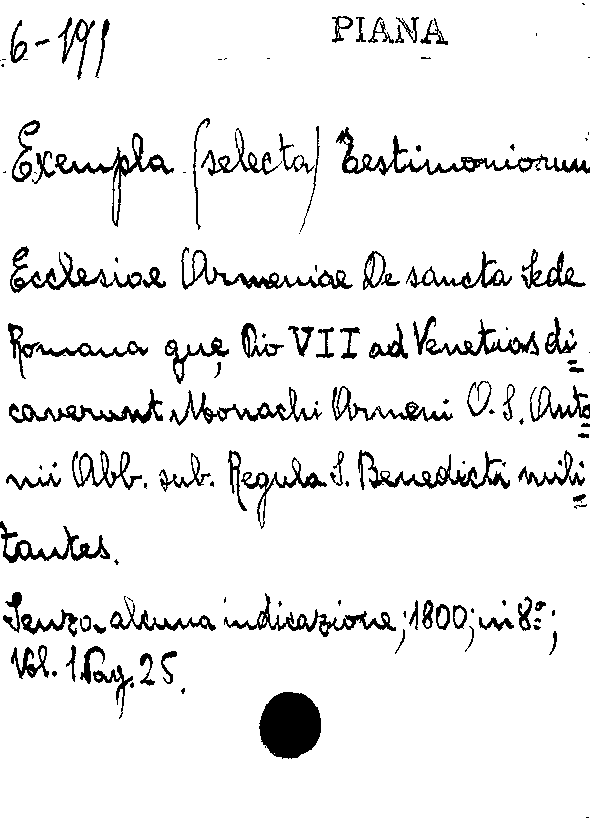 6-191 PIANA
Exempla (selecta) Testimoniorum
Ecclesiae Armeniae De sancta Sede
Romana quę Pio VII ad Venetias di=
caverunt Monachi Armeni O. S. Anto=
nii Abb. sub. Regula S. Benedicti mili=
tantes.
Senza alcuna indicazione; 1800; in 8º;
Vol. 1 Pag. 25.